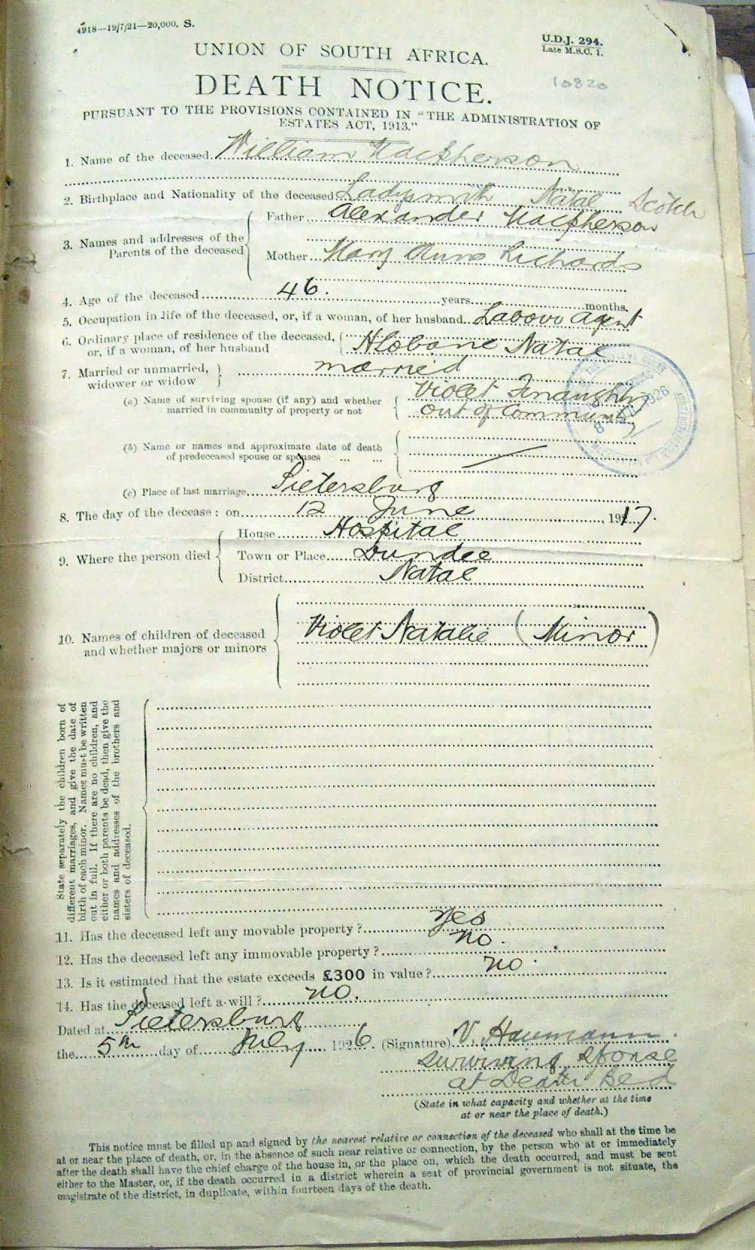 4918—19/7/21—20,000. S.
U.D.J. 294.
Late M.S.C. 1.
UNION OF SOUTH AFRICA.
10820
DEATH NOTICE.
PURSUANT TO THE PROVISIONS CONTAINED IN "THE ADMINISTRATION OF
ESTATES ACT, 1913."
1. Name of the deceased William Macpherson
2. Birthplace and Nationality of the deceased Ladysmith Natal Scotch
3. Names and addresses of the
Parents of the deceased
Father Alexander Macpherson
Mother Mary Anne Richards
4. Age of the deceased 46. years months.
5. Occupation in life of the deceased, or, if a woman, of her husband Labour Agent
6. Ordinary place of residence of the deceased,
or, if a woman, of her husband
Hlobane Natal
7. Married or unmarried,
widower or widow
married
(a) Name of surviving spouse (if any) and whether
married in community of property or not
Violet Finaughty
out of Community
1926
(b) Name or names and approximate date of death
of predeceased spouse or spouses
(c) Place of last marriage Pietersburg
8. The day of the decease: on 12 June, 1917.
9. Where the person died
House Hospital
Town or Place Dundee
District Natal
10. Names of children of deceased
and whether majors or minors
Violet Natalie (Minor)
State separately the children born of
different marriages, and give the date of
birth of each minor. Names must be written
out in full. If there are no children, and
either or both parents be dead, then give the
names and addresses of the brothers and
sisters of deceased.
11. Has the deceased left any movable property? Yes
12. Has the deceased left any immovable property? no.
13. Is it estimated that the estate exceeds £300 in value? no.
14. Has the deceased left a will? no.
Dated at Pietersburg
the 5th day of July 1926. (Signature) V. Haumann.
surviving spouse
at Death Bed
(State in what capacity and whether at the time
at or near the place of death.)
This notice must be filled up and signed by the nearest relative or connection of the deceased who shall at the time be
at or near the place of death, or, in the absence of such near relative or connection, by the person who at or immediately
after the death shall have the chief charge of the house in, or the place on, which the death occurred, and must be sent
either to the Master, or, if the death occurred in a district wherein a seat of provincial government is not situate, the
magistrate of the district, in duplicate, within fourteen days of the death.